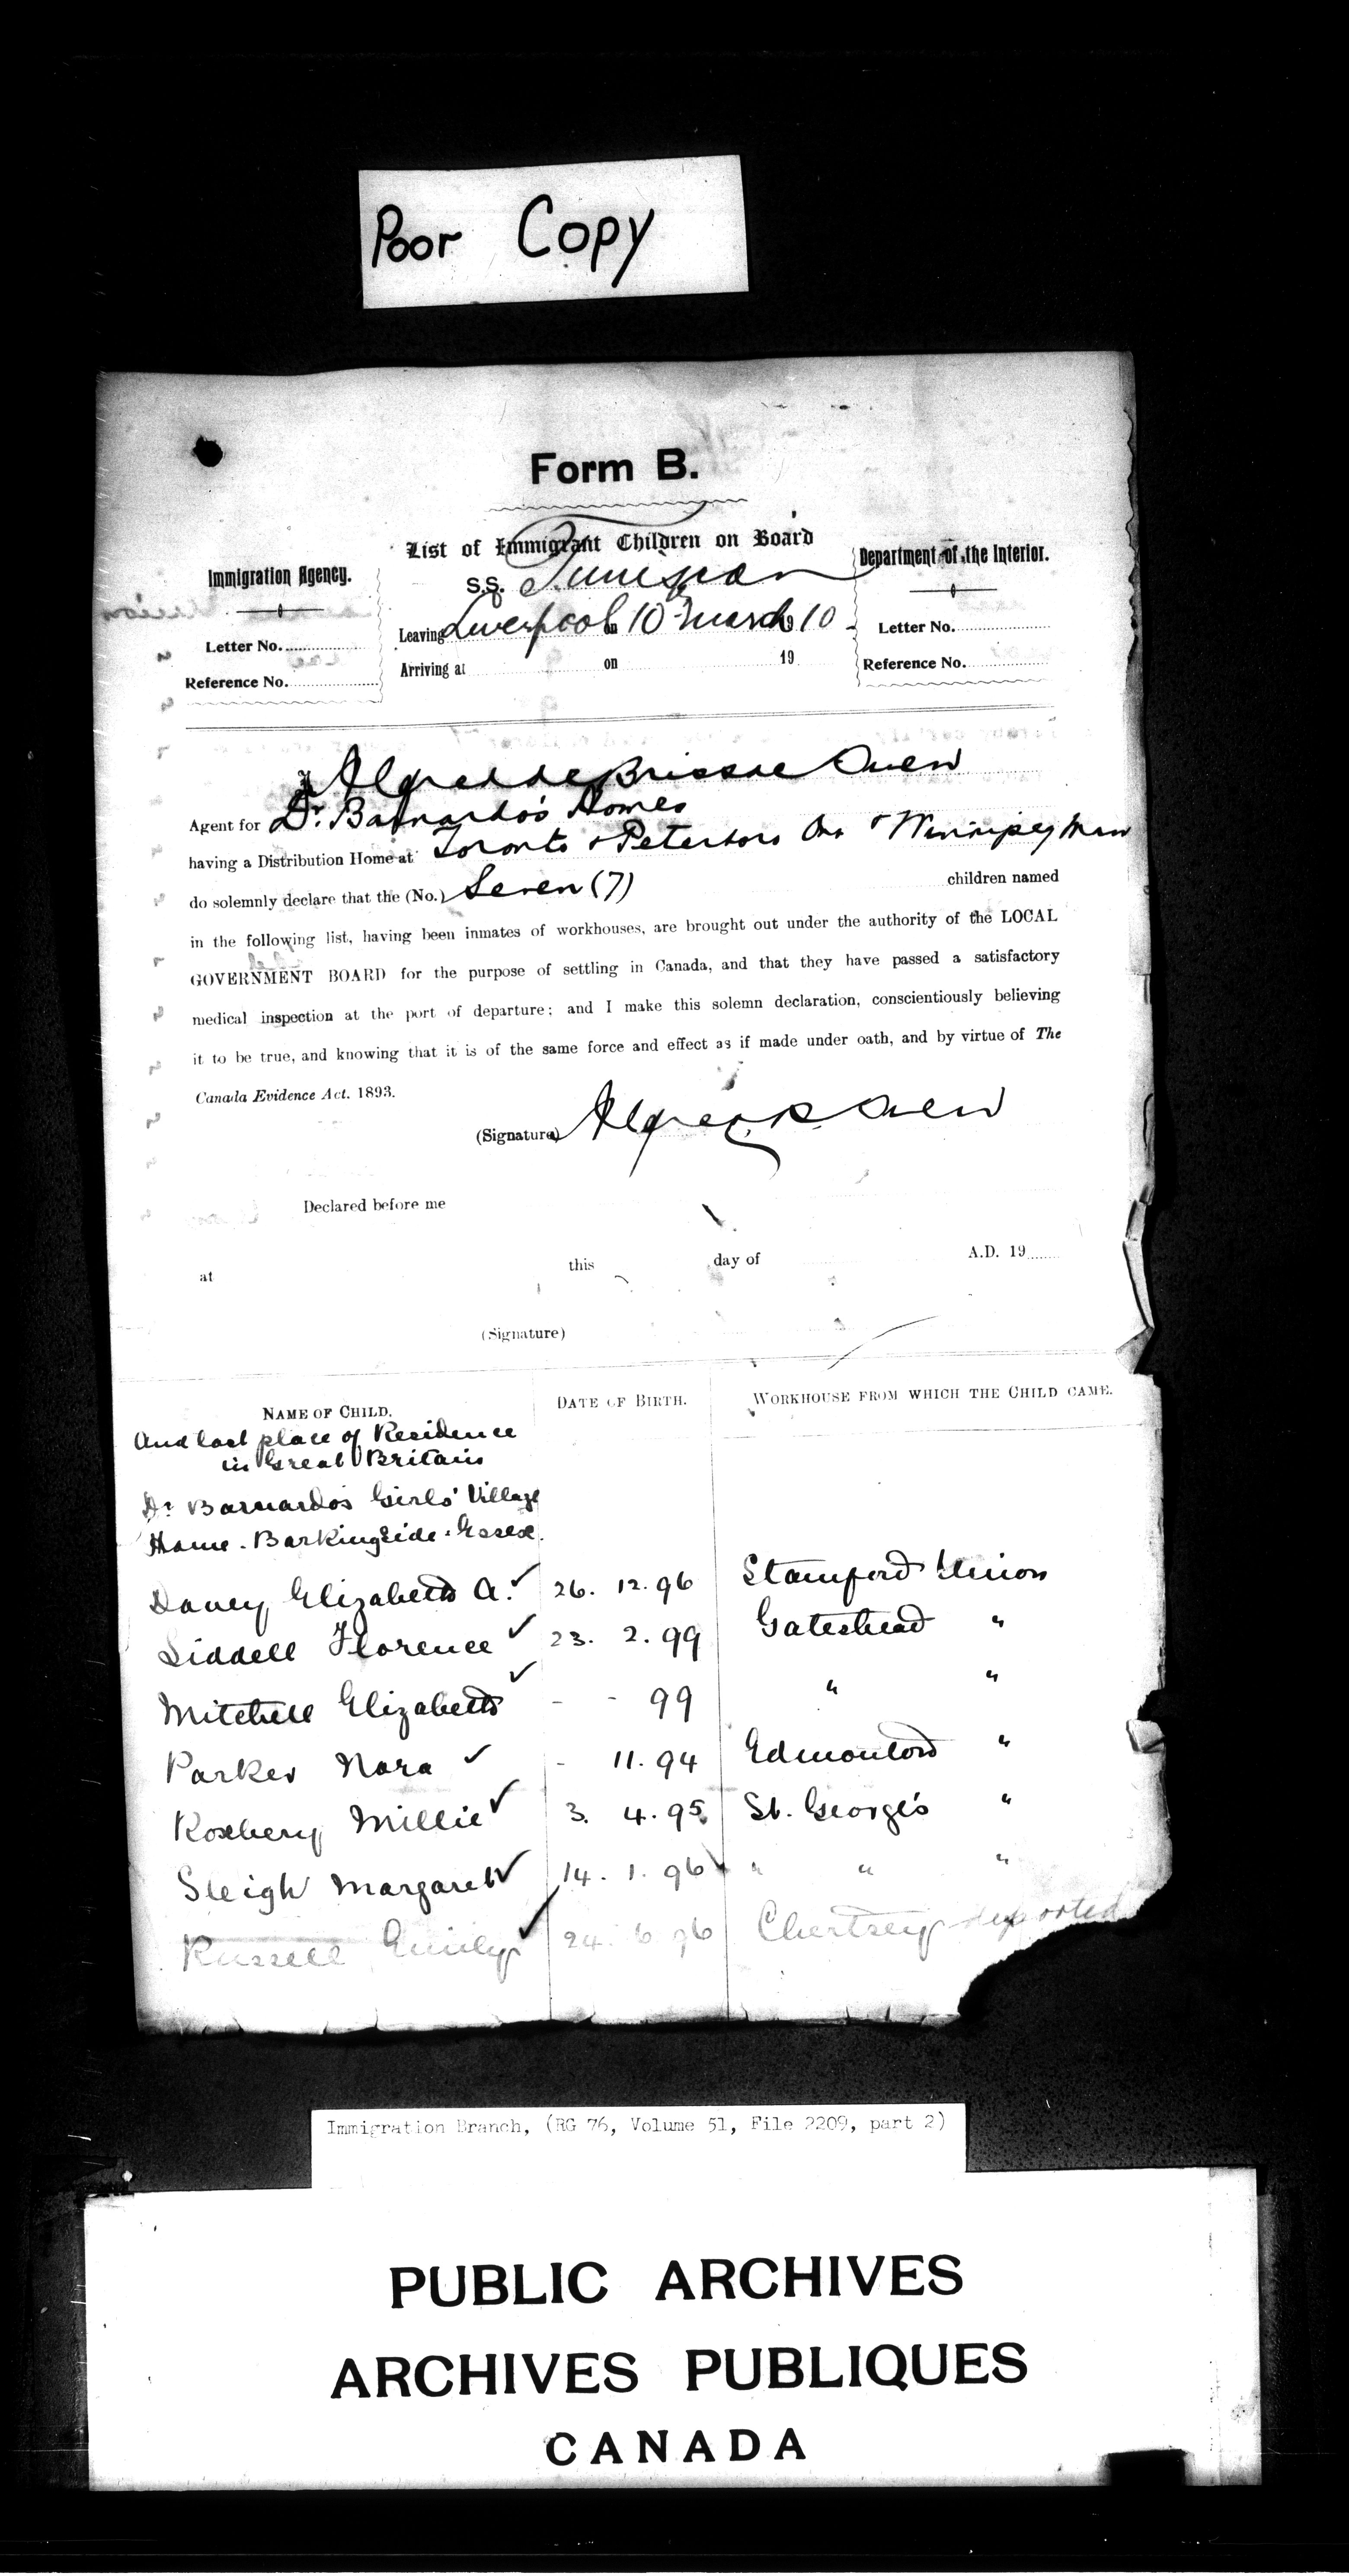 Poor Copy
Form B.
List of Immigrant Children on Board
Immigration Agency.
Department of the Interior.
S.S. Tunisian
Letter No.
Leaving Liverpool on 10 March 1910
Letter No.
Reference No.
Arriving at on 19
Reference No.
I Alfred de Brissac Owen
Agent for Dr. Barnardo's Homes
having a Distribution Home at Toronto & Peterboro Ont & Winnipeg Man
do solemnly declare that the (No.) Seven (7) children named
in the following list, having been inmates of workhouses, are brought out under the authority of the LOCAL
GOVERNMENT BOARD for the purpose of settling in Canada, and that they have passed a satisfactory
medical inspection at the port of departure; and I make this solemn declaration, conscientiously believing
it to be true, and knowing that it is of the same force and effect as if made under oath, and by virtue of The
Canada Evidence Act. 1893.
(Signature) Alfred B. Owen
Declared before me
at this day of A.D. 19
(Signature)
NAME OF CHILD. DATE OF BIRTH. WORKHOUSE FROM WHICH THE CHILD CAME.
And last place of Residence
in Great Britain
Dr Barnardo's Girls' Village
Home. Barkingside. Essex.
Davey Elizabeth A. ✓ 26. 12. 96 Stamford Union
Liddell Florence ✓ 23. 2. 99 Gateshead "
Mitchell Elizabeth ✓ - - 99 " "
Parker Nora ✓ - 11. 94 Edmonton "
Roxbery Millie ✓ 3. 4. 95 St. George's "
Sleigh Margaret ✓ 14. 1. 96 " " "
Russell Emily ✓ 24. 6. 96 Chertsey deported
Immigration Branch, (RG 76, Volume 51, File 2209, part 2)
PUBLIC ARCHIVES
ARCHIVES PUBLIQUES
CANADA